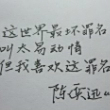 这世界最坏罪名
叫太易动情
但我喜欢这罪名
陈奕迅